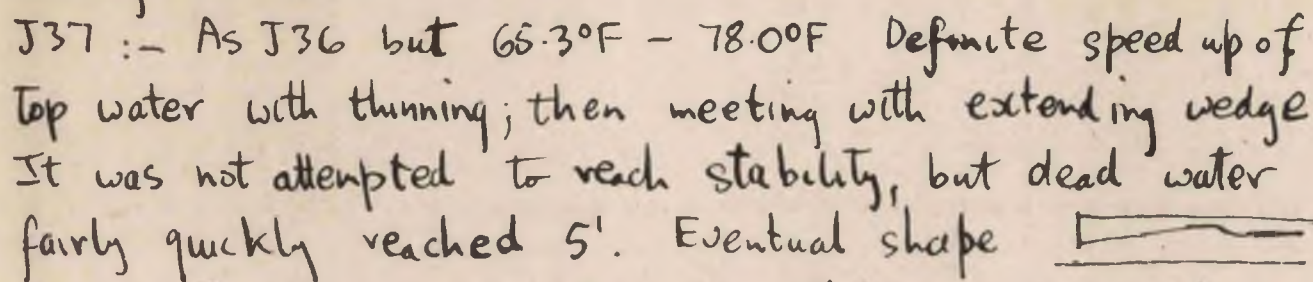 J37 :- As J36 but 65.3°F - 78.0°F Definite speed up of
Top water with thinning; then meeting with extending wedge
It was not attempted to reach stability, but dead water
fairly quickly reached 5'. Eventual shape